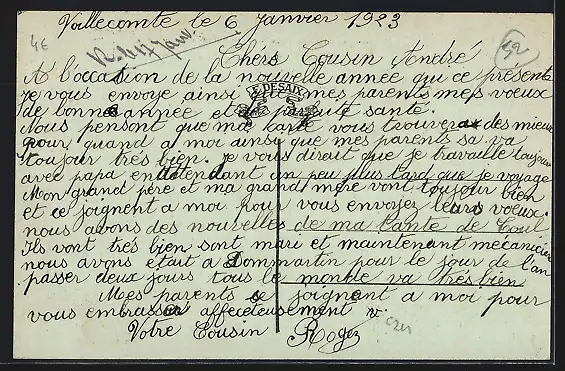 Vallecomte le 6 Janvier 1923
4€
R. le 17 Janv.
92
Chers Cousin André
A l'occasion de la nouvelle année qui ce présente
je vous envoye ainsi que mes parents mes voeux
de bonne année et de parfaite santé.
LE DESAIX
Nous pensont que ma carte vous trouvera des mieux
pour quand a moi ainsy que mes parents sa va
toujour très bien. je vous dirait que je travaille toujours
avec papa en attendant un peu plus tard que je voyage
Mon grand père et ma grand mère vont toujour bien
et ce joignent a moi pour vous envoyez leurs voeux.
nous avons des nouvelles de ma tante de Toul
Ils vont très bien sont mari et maintenant mécanicien
nous avons était a Dommartin pour le jour de l'an
passer deux jours tous le monde va très bien
Mes parents se joignent a moi pour
vous embrasser affeceteusement v.
Votre Cousin Roger